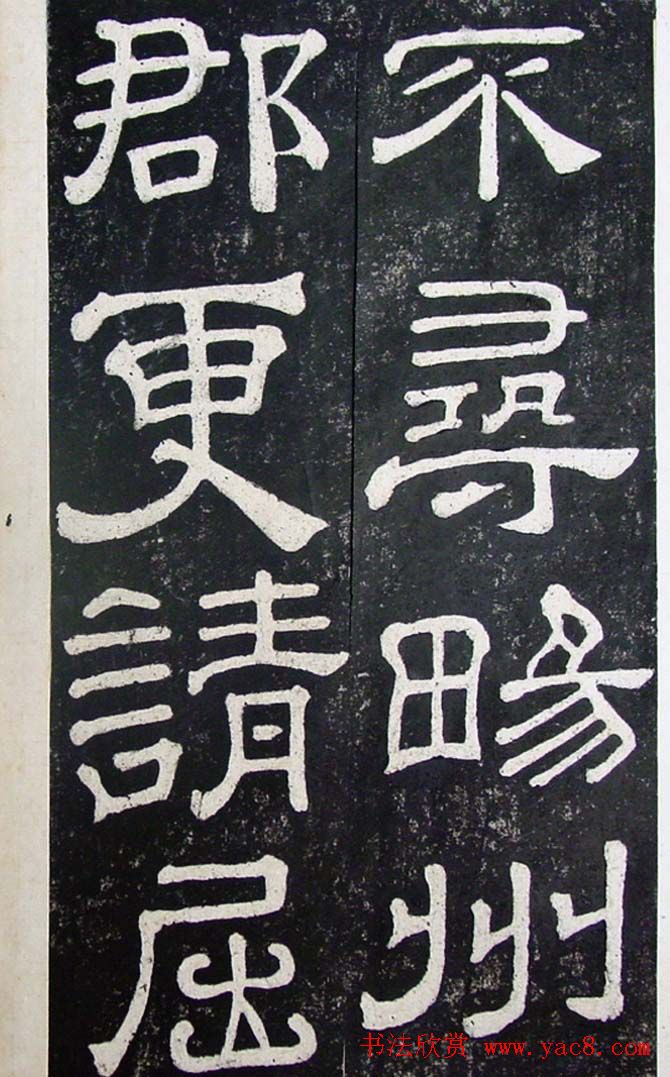 不尋畼州
郡更請屈
书法欣赏 www.yac8.com